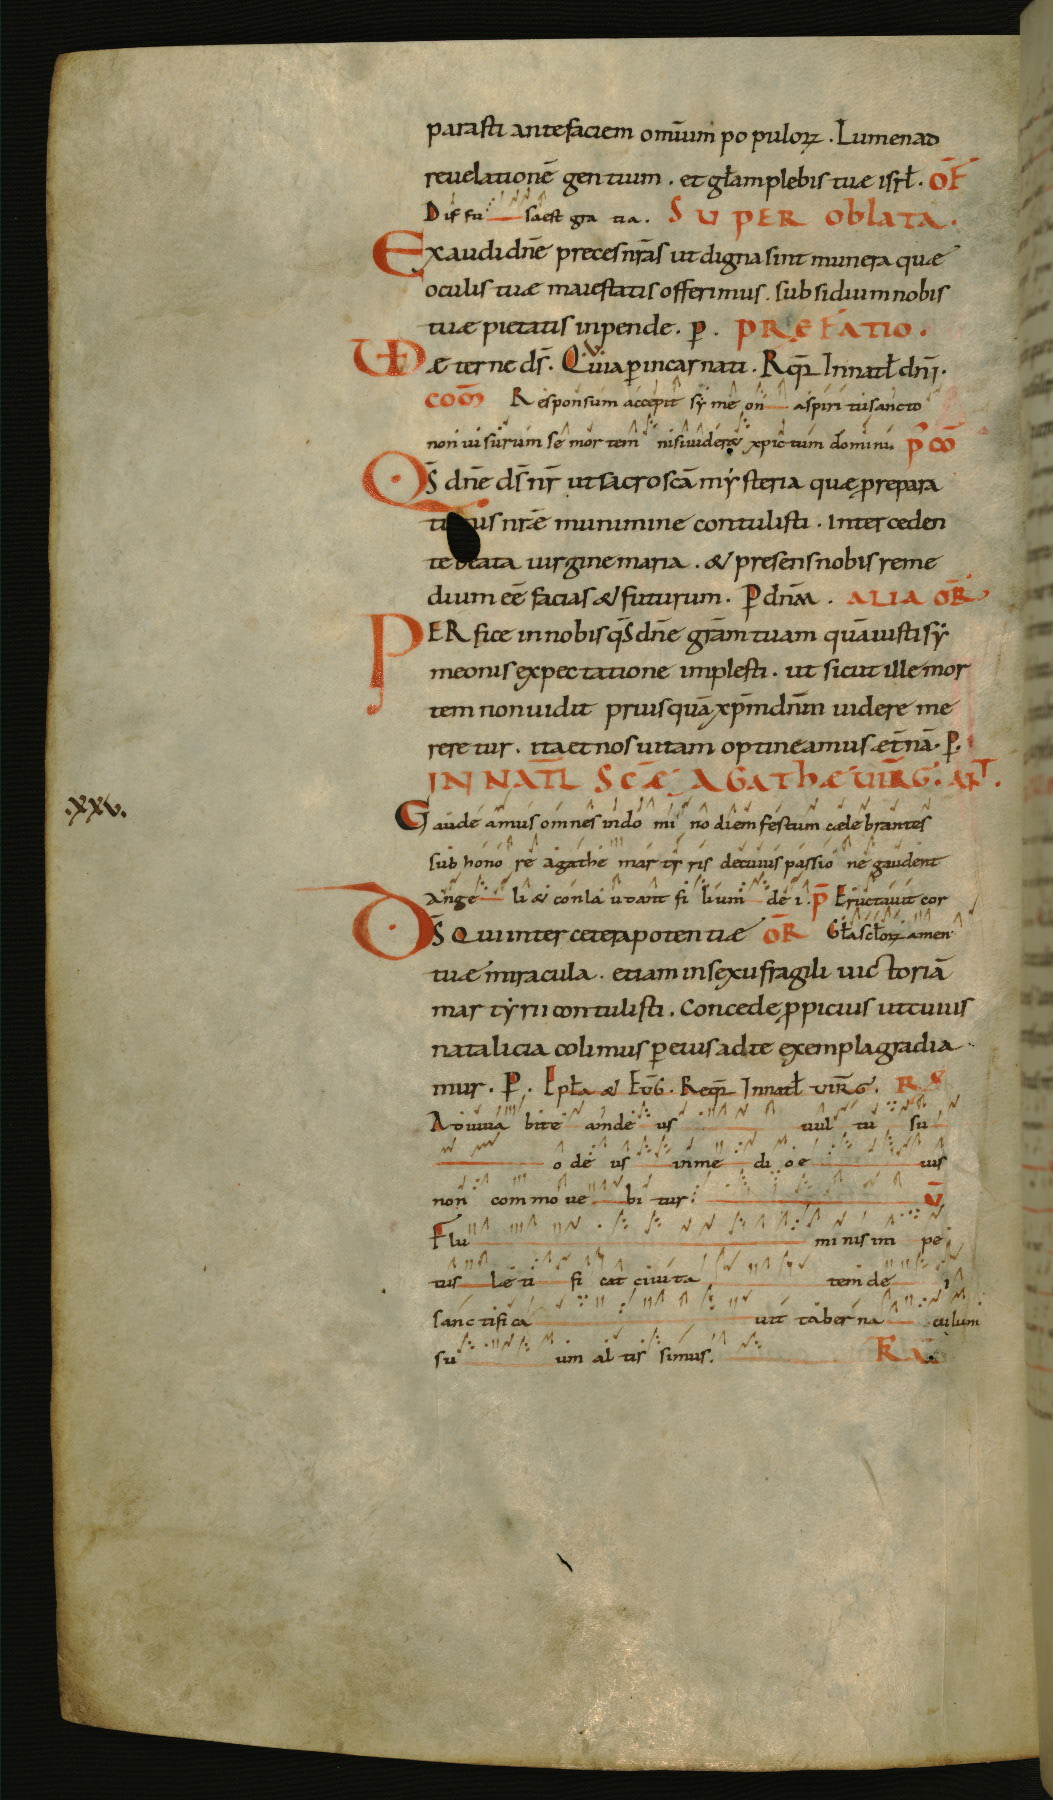 parasti ante faciem omiũm populoꝝ. Lumen ad
reuelationẽ gentium. et gł̃am plebis tuæ isrł. OF̃
Diffu sa est gratia. SUPER OBLATA.
Exaudi dñe preces nr̃as ut digna sint munera quæ
oculis tuæ maiestatis offerimus. subsidium nobis
tuæ pietatis inpende. p. PREFATIO.
VD æterne ds̃. Quia ꝑ incarnati. Req̃r In natł dñi.
COM̃ Responsum accepit symeon a spiritu sancto
non uisurum se mortem nisi uideret xpictum dominũ P̃CO
Qs̃ dñe ds̃ nr̃ ut sacrosc̃a mysteria quæ prepara
ti us nr̃e munimine contulisti. Interceden
te beata uirgine maria. & presens nobis reme
dium eẽ facias & futurum. P dñm. ALIA OR̃
PERfice in nobis qs̃ dñe gr̃am tuam quã iusti sy
meonis expectatione implesti. ut sicut ille mor
tem non uidit prius quã xp̃m dñm uidere me
reretur. ita et nos uitam optineamus æt̃nã. P.
IN NATL̃ SC̃Æ AGATHÆ UIRG̃. ANT.
.xxv.
Gaudeamus omnes in domino diem festum cælebrantes
sub honore agathe martyris de cuius passione gaudent
angeli & conlaudant filium dei. P̃ Eructauit cor
Ds̃ Qui inter cetera potentiæ OR̃ Gł̃a scłoꝝ amen
tuæ miracula. etiam in sexu fragili uictoriã
martyrii contulisti. Concede ꝓpicius ut cuius
natalicia colimus ꝑ eius ad te exempla gradia
mur. P. Epł̃a & EũG. Req̃r In natł UIRG̃. R
Adiuuabit eam deus uultu su
o deus in medio eius
non commouebitur. V̄
Fluminis impe
tus lætificat ciuitatem dei
sanctificauit tabernaculum
suum altissimus.